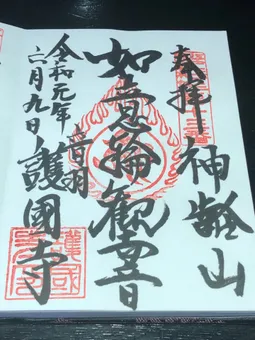 奉拝
神齢山
如意輪観世音
音羽
護國寺
令和元年
六月九日